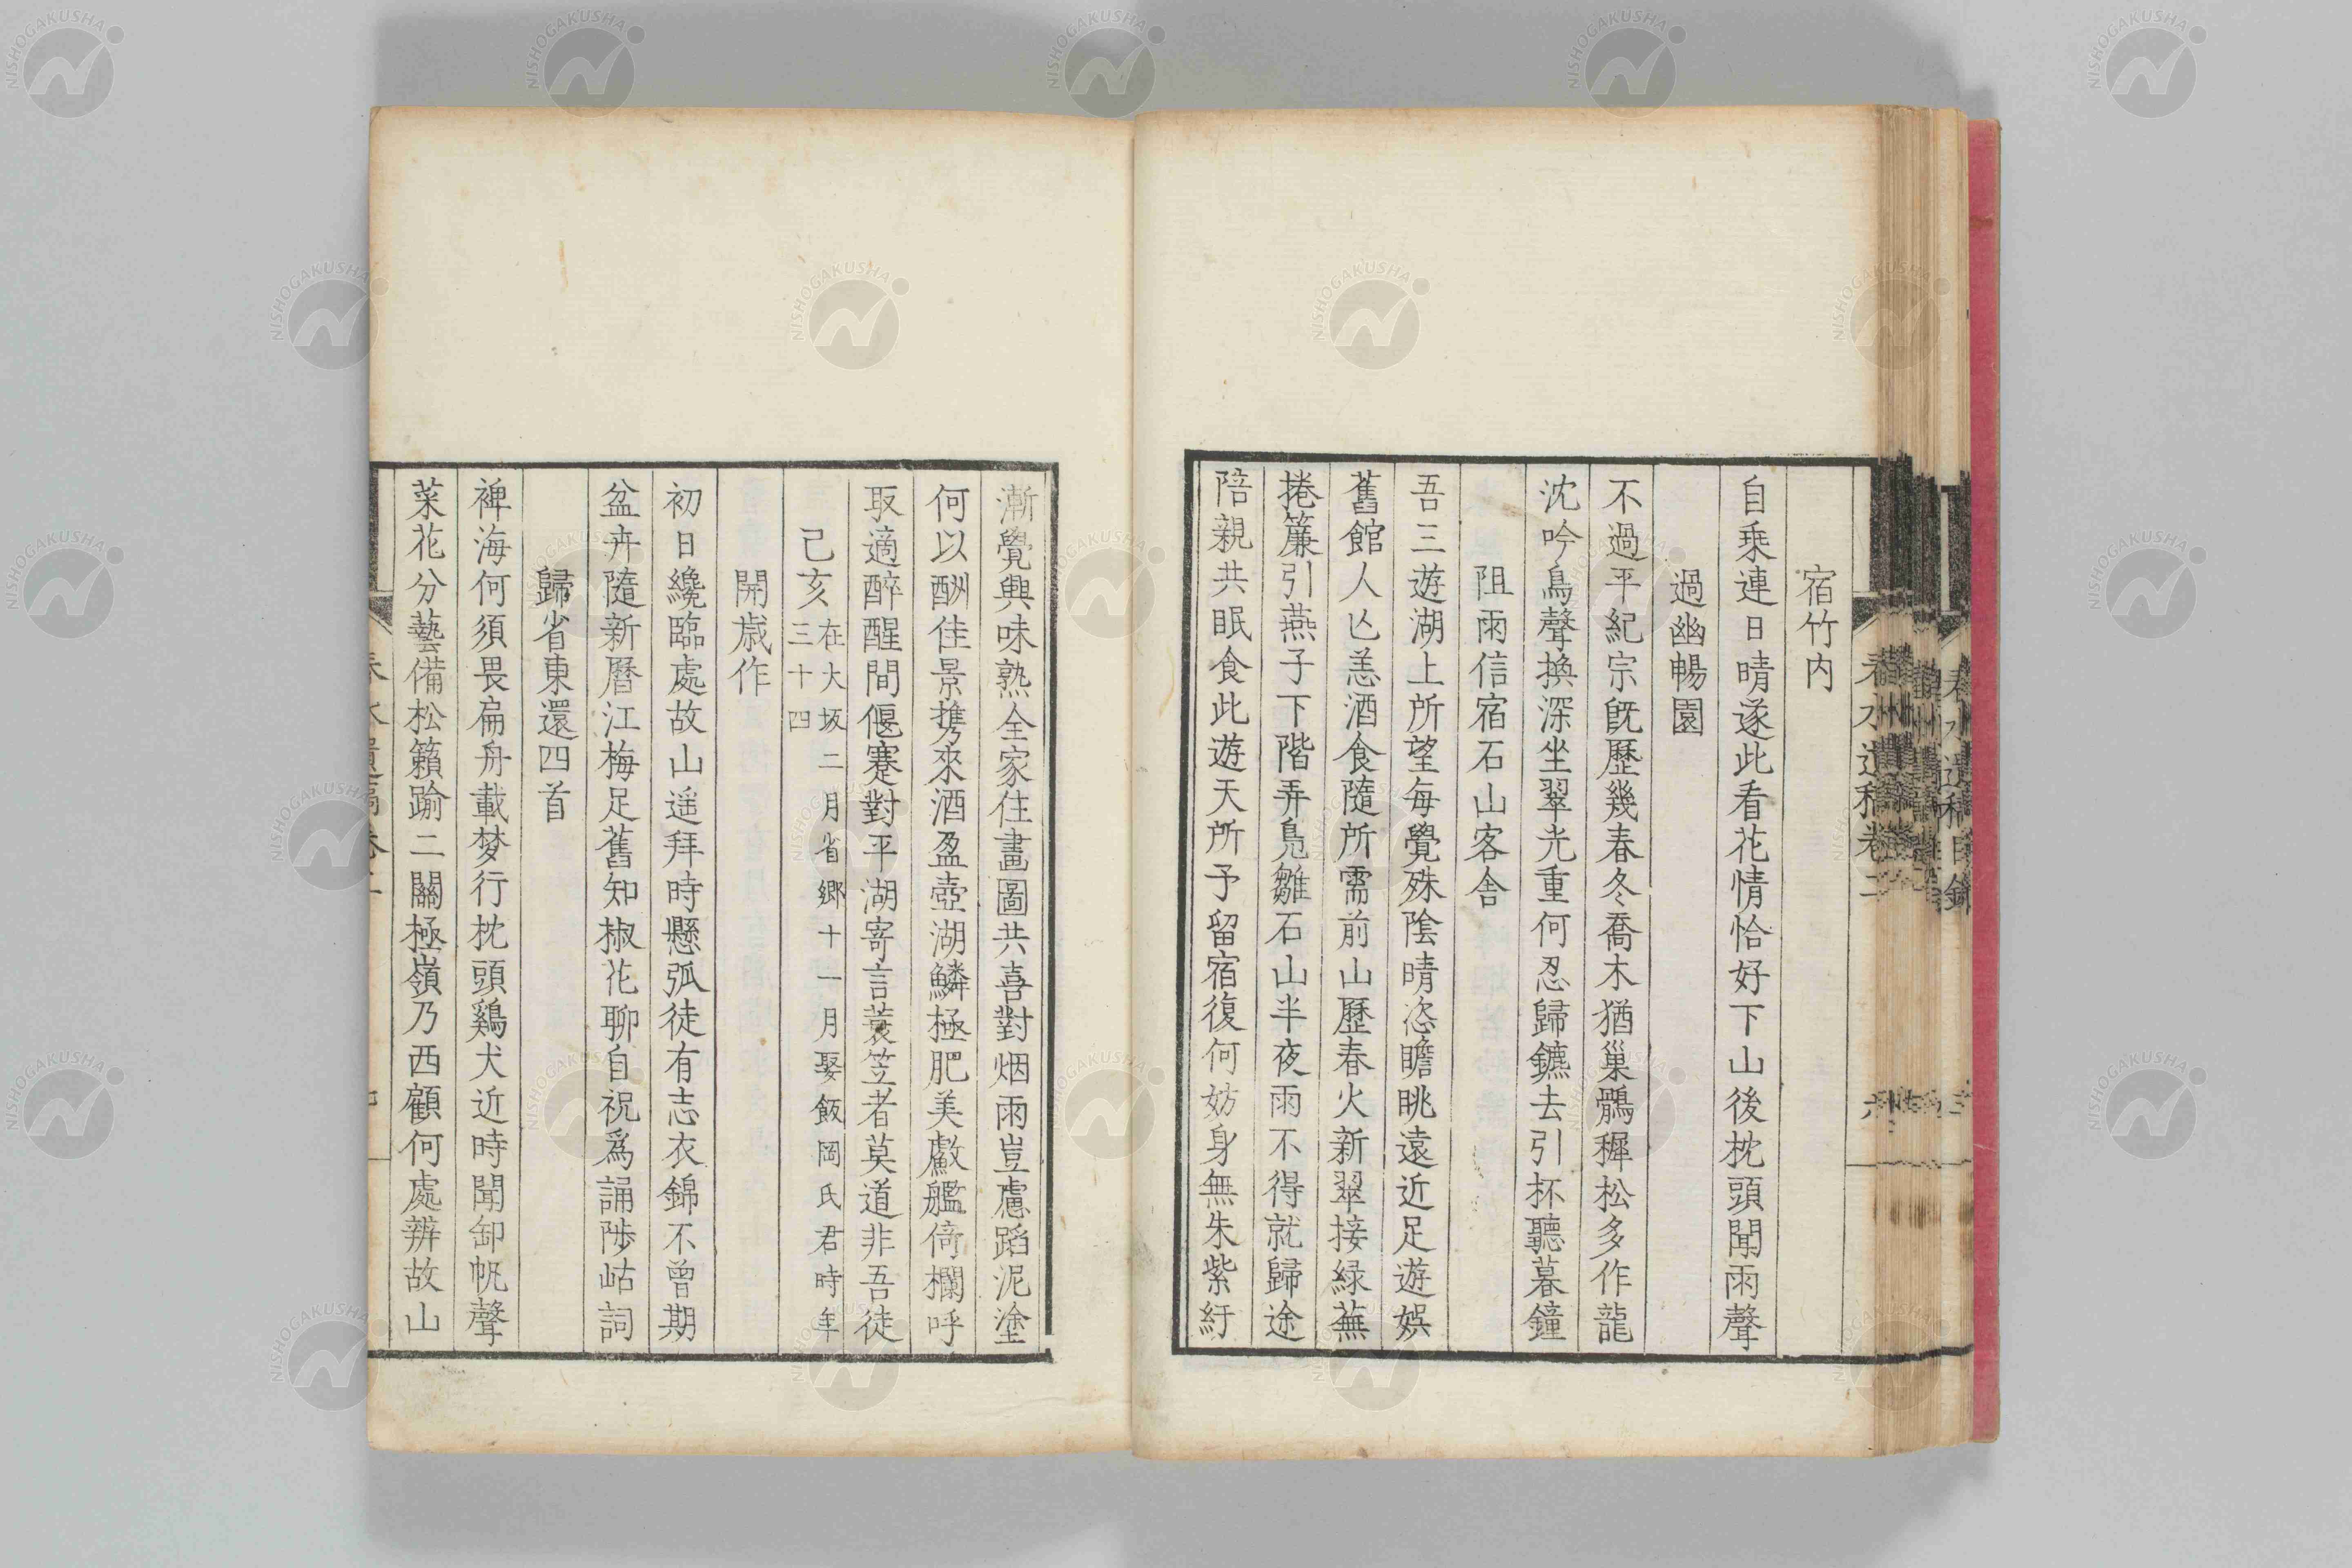 宿竹内
自乗連日晴遂此看花情恰好下山後枕頭聞雨聲
過幽暢園
不過平紀宗旣歷幾春冬喬木猶巢鸛穉松多作龍
沈吟鳥聲換深坐翠光重何忍歸鑣去引杯聽暮鐘
阻雨信宿石山客舍
吾三遊湖上所望每覺殊陰晴恣瞻眺遠近足遊娯
舊館人亾恙酒食隨所需前山歷春火新翠接綠蕪
捲簾引燕子下階弄鳬雛石山半夜雨不得就歸途
陪親共眠食此遊天所予留宿復何妨身無朱紫紆
漸覺興味熟全家住畫圖共喜對烟雨豈慮蹈泥塗
何以酬佳景携來酒盈壺湖鱗極肥美䱷艦倚欄呼
取適醉醒間偃蹇對平湖寄言蓑笠者莫道非吾徒
己亥在大坂二月省郷十一月娶飯岡氏君時年三十四
開歲作
初日纔臨處故山遥拜時懸弧徒有志衣錦不曾期
盆卉隨新曆江梅足舊知椒花聊自祝爲誦陟岵詞
歸省東還四首
裨海何須畏扁舟載梦行枕頭鷄犬近時聞卸帆聲
菜花分藝備松籟踰二關極嶺乃西顧何處辨故山